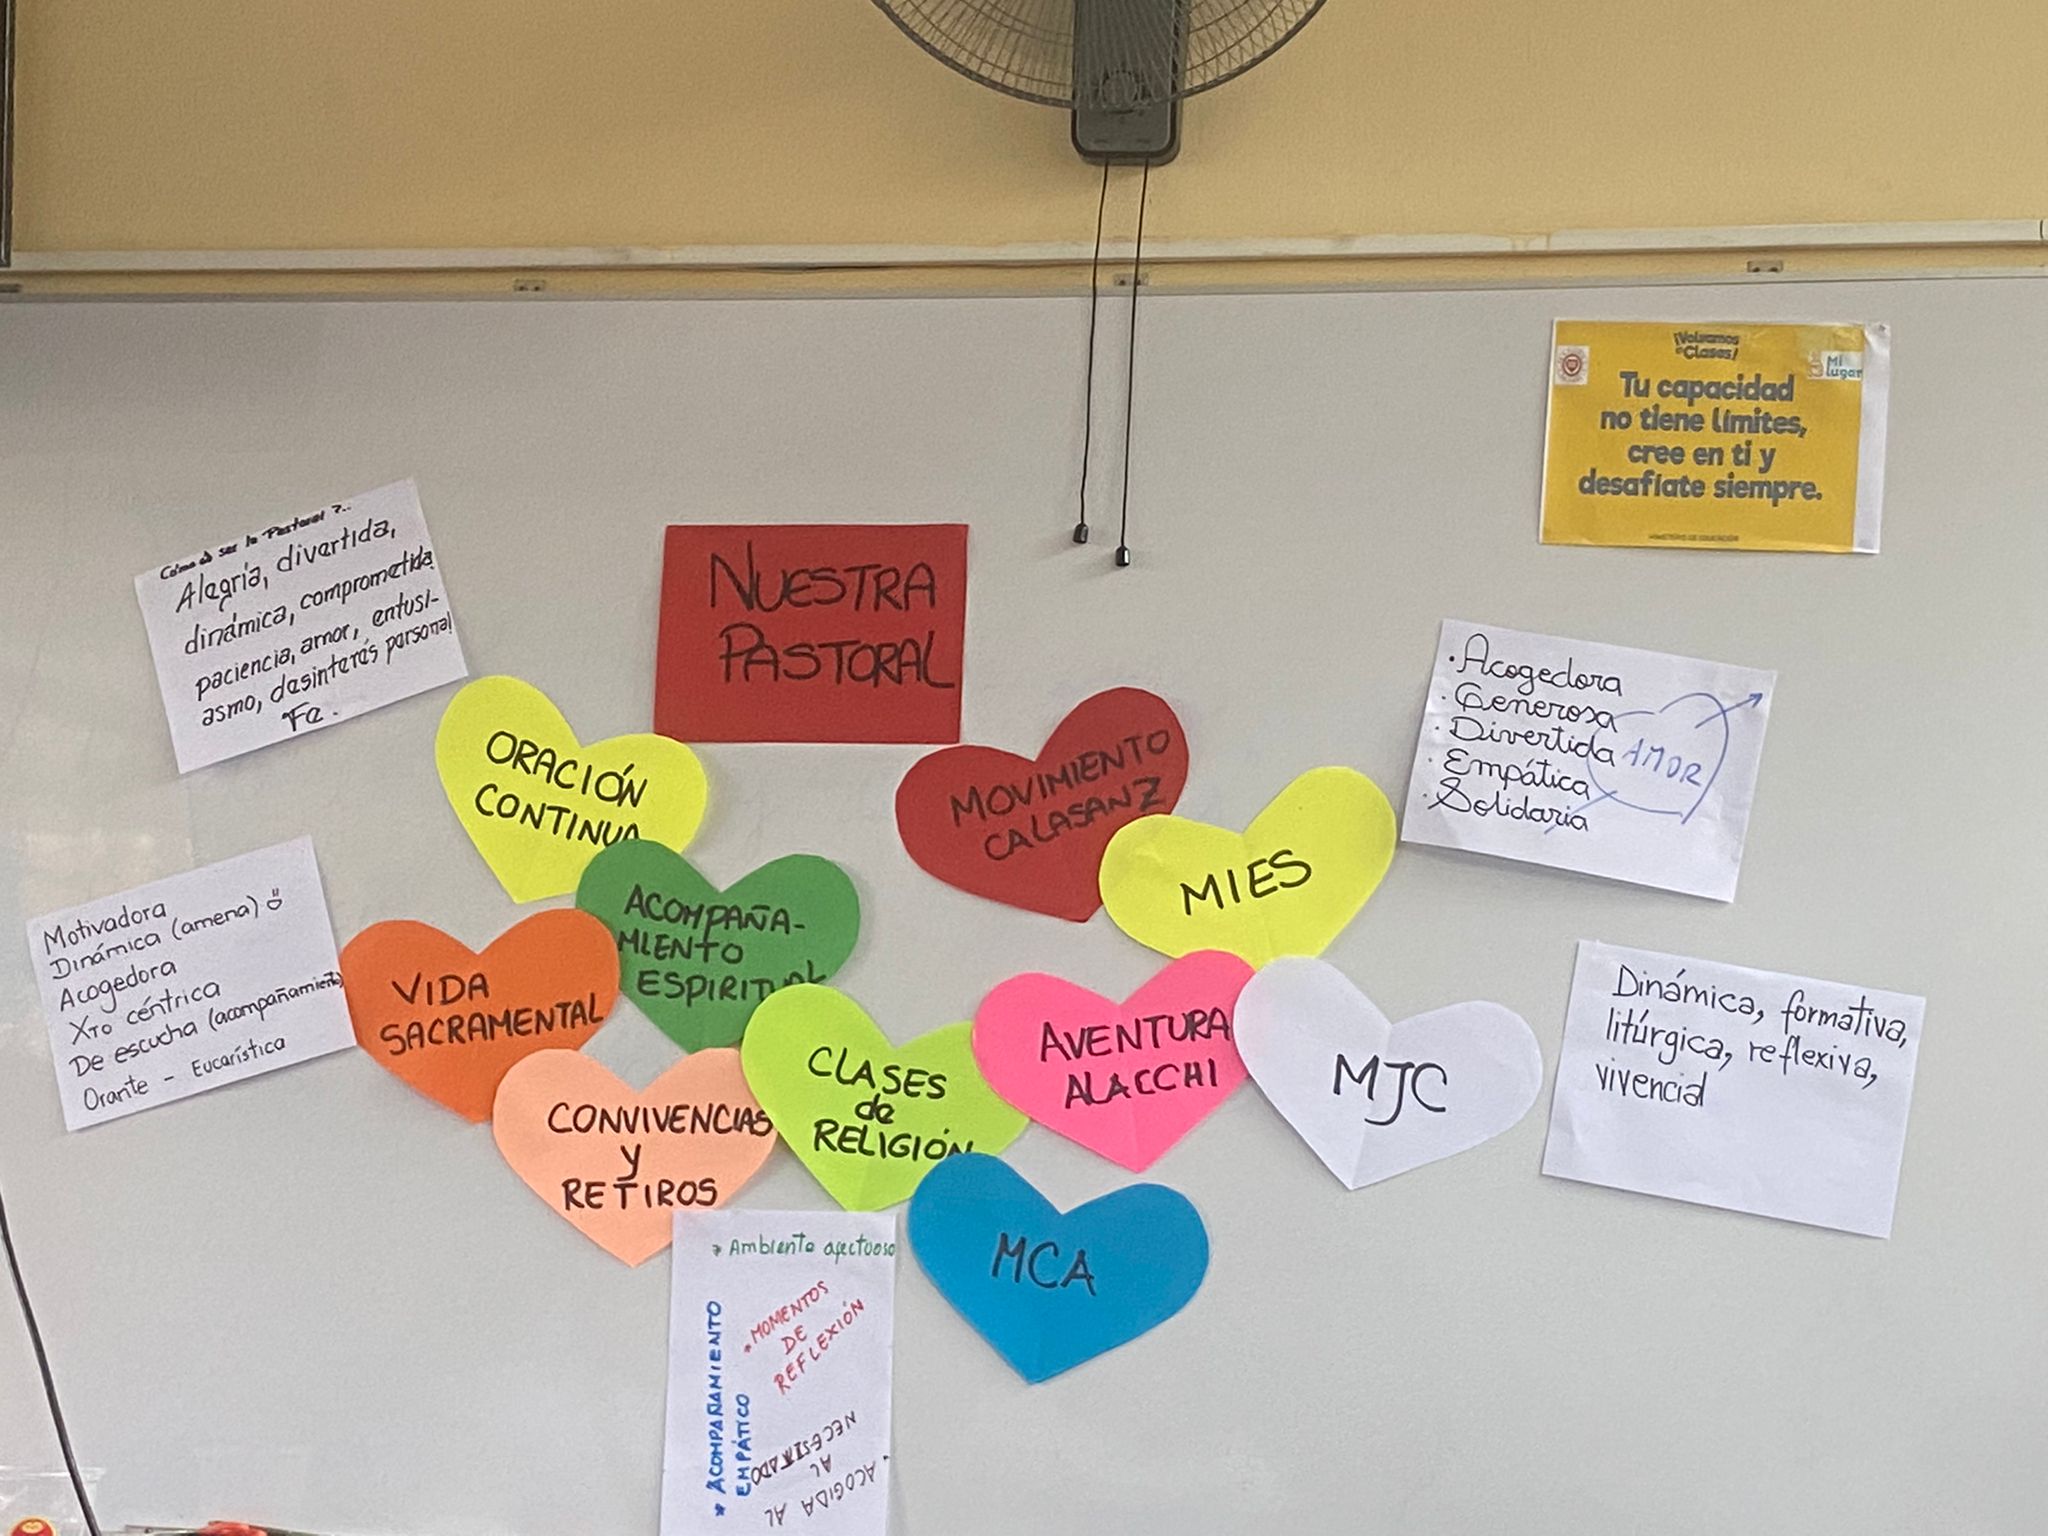 ¡Volvamos
a Clases!
Mi
lugar
Tu capacidad
no tiene límites,
cree en ti y
desafíate siempre.
MINISTERIO DE EDUCACIÓN
ser la Pastoral ?..
Alegría, divertida,
dinámica, comprometida
paciencia, amor, entusi-
asmo, desinterés personal
Fe.
NUESTRA
PASTORAL
• Acogedora
• Generosa
• Divertida
• Empática
• Solidaria
AMOR
ORACIÓN
CONTINUA
MOVIMIENTO
CALASANZ
MIES
Motivadora
Dinámica (amena)
Acogedora
Xto céntrica
De escucha (acompañamiento)
Orante - Eucarística
ACOMPAÑA-
MIENTO
ESPIRITUAL
VIDA
SACRAMENTAL
CONVIVENCIAS
y
RETIROS
CLASES
de
RELIGIÓN
AVENTURA
ALACCHI
MJC
Dinámica, formativa,
litúrgica, reflexiva,
vivencial
MCA
* Ambiente afectuoso
* MOMENTOS
DE
REFLEXIÓN
* ACOMPAÑAMIENTO
EMPÁTICO
* ACOGIDA AL
AL
NECESITADO